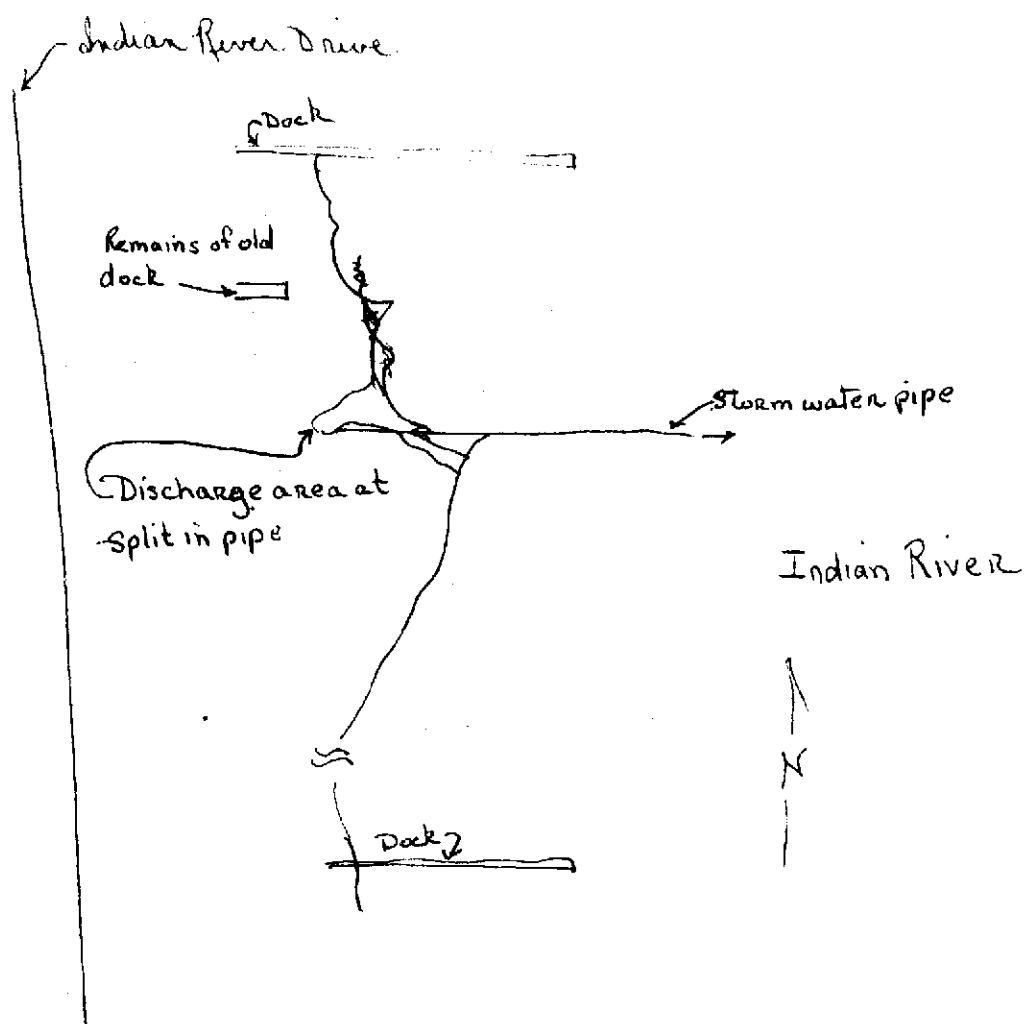 Indian River Drive
Dock
Remains of old
dock
Storm water pipe
Discharge area at
split in pipe
Indian River
N
Dock